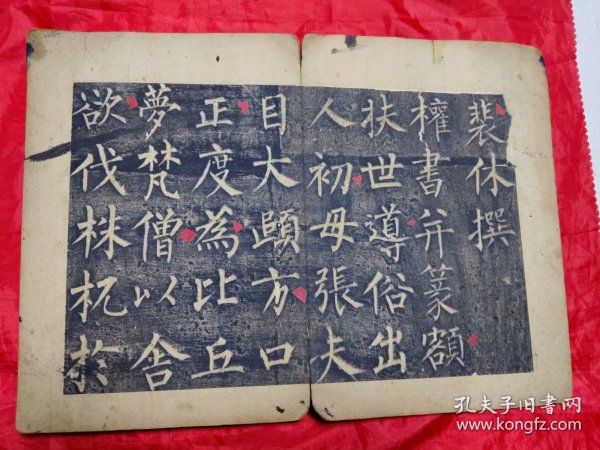 裴休撰
權書并篆額
扶世導俗出
人初母張夫
目大頤方口
正度為比丘
夢梵僧以舍
欲伐株杌於
孔夫子旧書网
www.kongfz.com